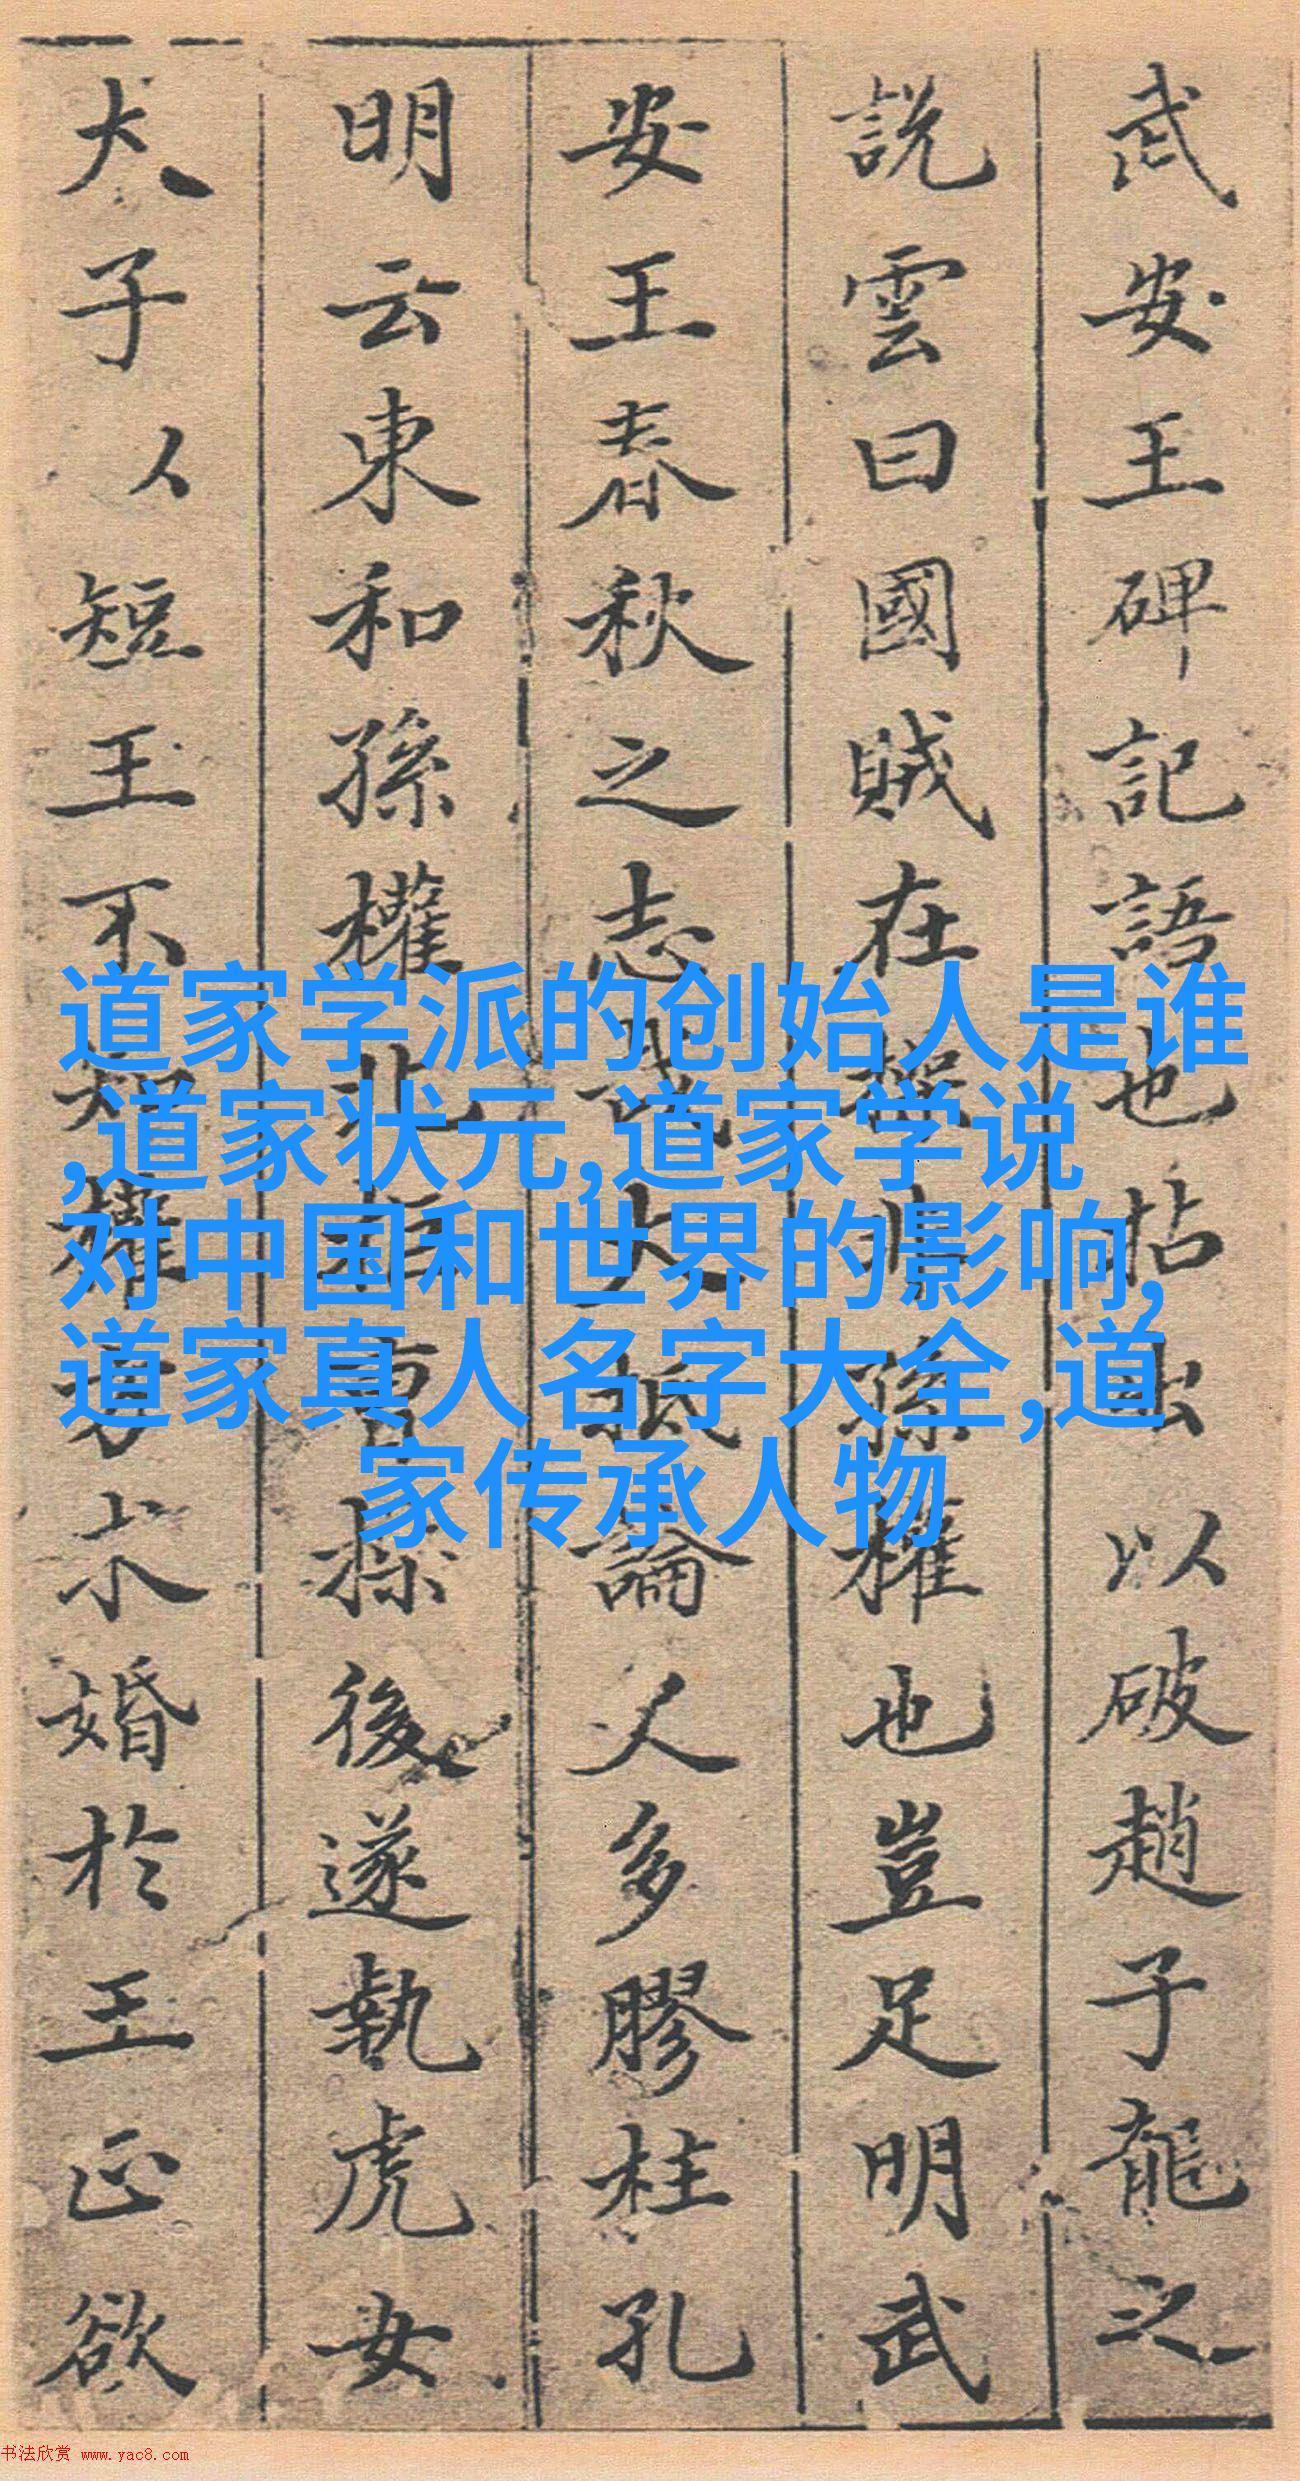 武安王碑記語也拈出以破趙子龍之
說雲曰國賊在操非孫權也豈足明武
安王春秋之志哉大抵論人多膠柱孔
明云東和孫權北拒曹操後遂執虎女
犬子短王不知權方求婚於王正欲
道家学派的创始人是谁
,道家状元,道家学说
对中国和世界的影响,
道家真人名字大全,道
家传承人物
书法欣赏 www.yac8.com